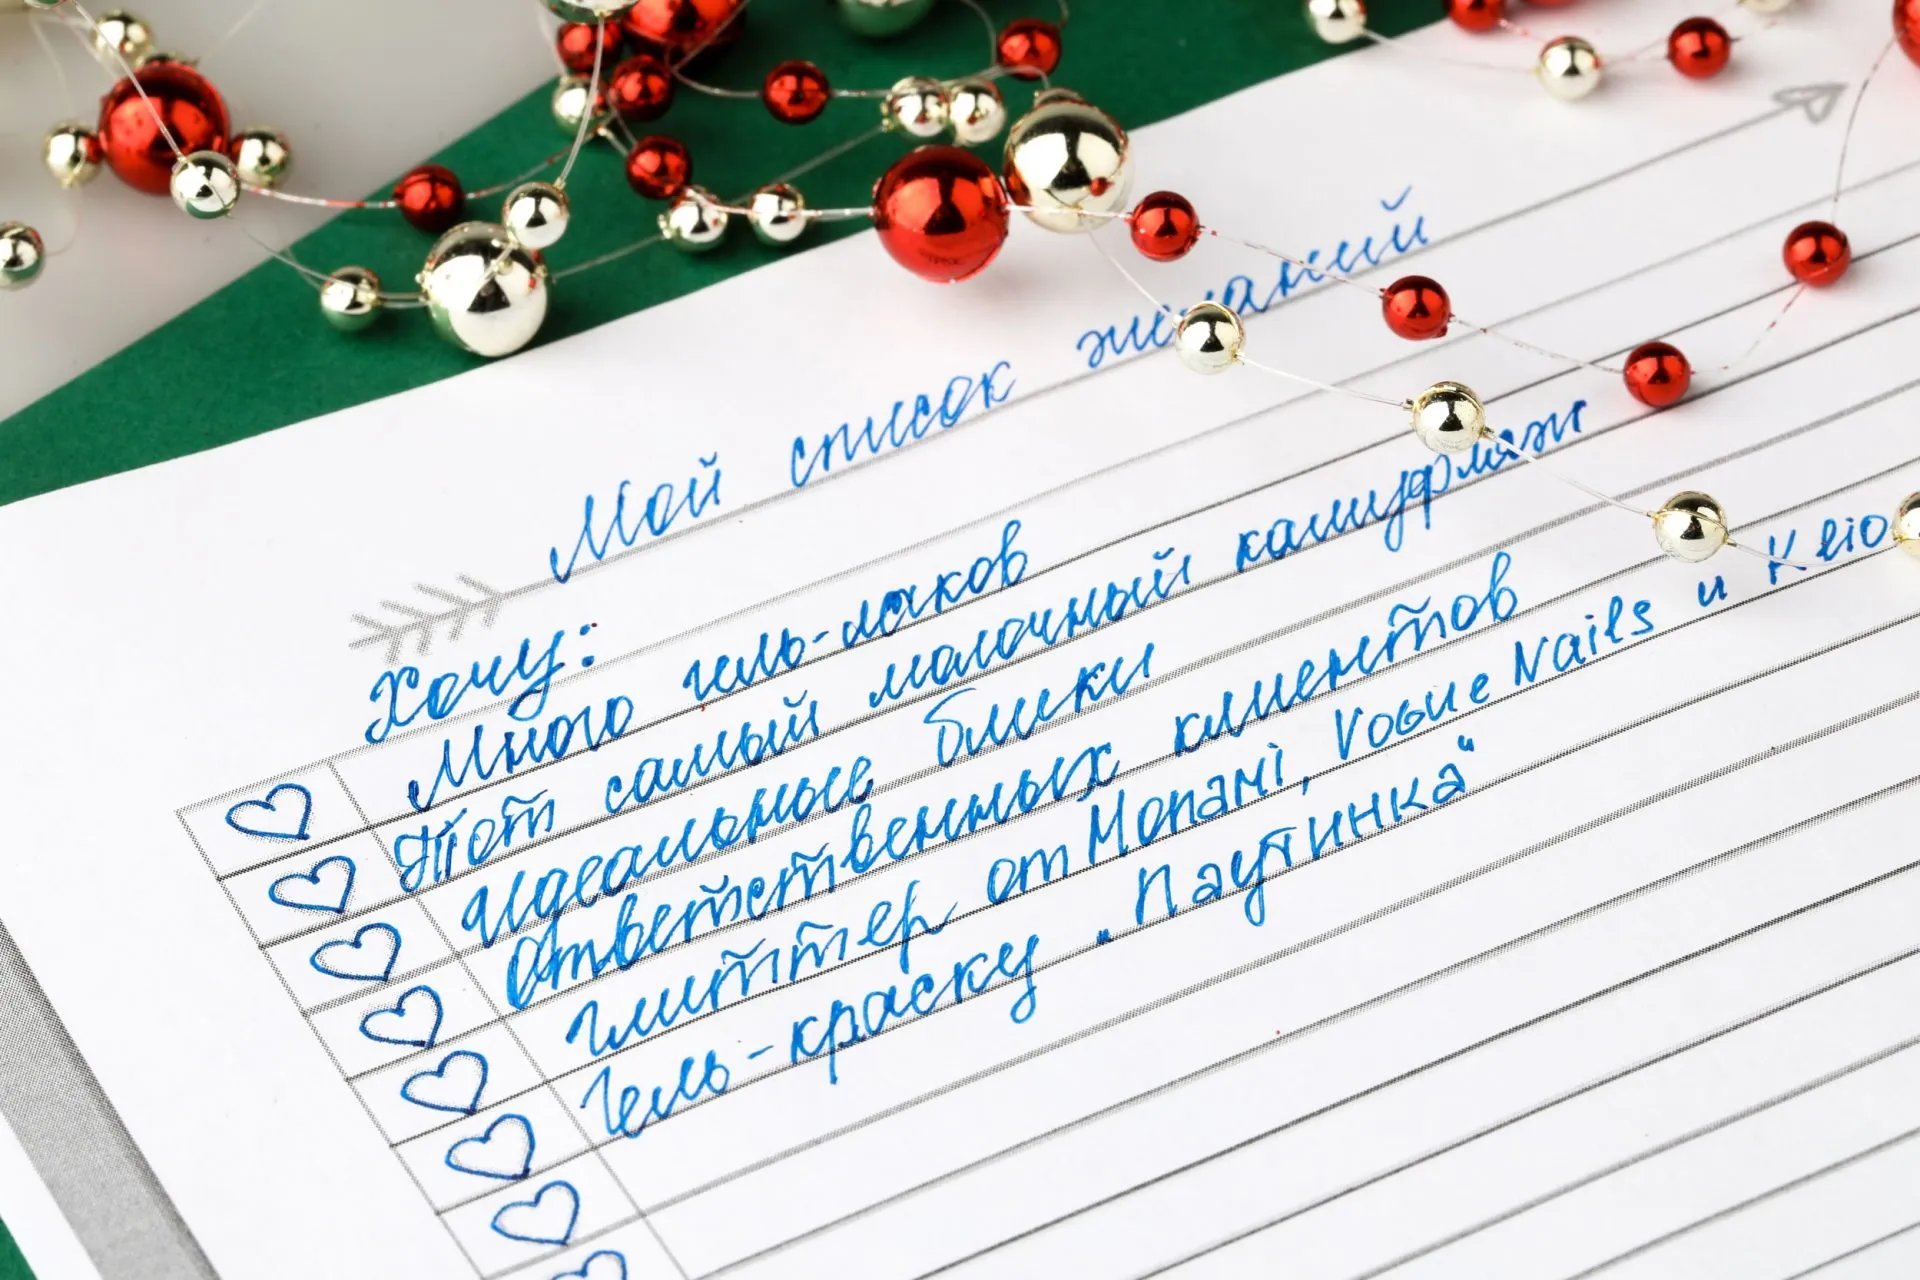 Мой список желаний
Хочу:
Много гель-лаков
Тот самый молочный камуфляж
Идеальные блики
Ответственных клиентов
Глиттер от Monami, Vogue Nails и Klio
Гель-краску „Паутинка“